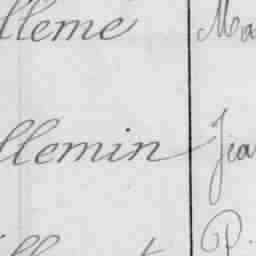 lleme Ma
llemin Jea